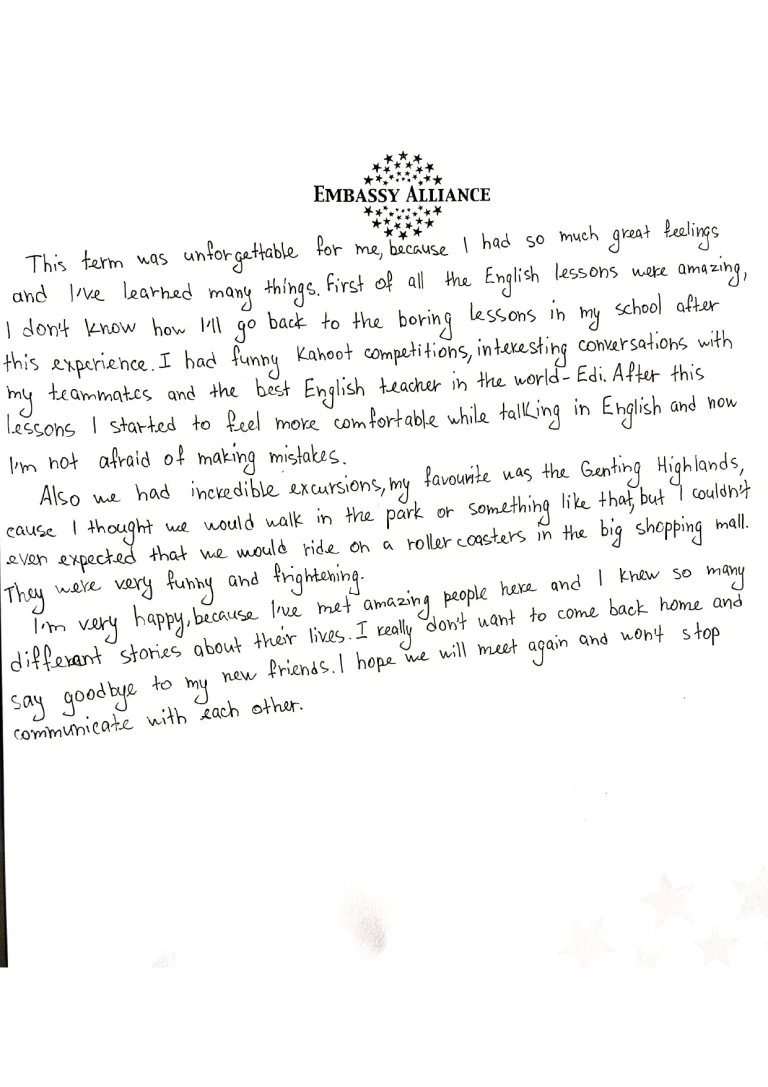 EMBASSY ALLIANCE
This term was unforgettable for me, because I had so much great feelings
and I've learned many things. First of all the English lessons were amazing,
I don't know how I'll go back to the boring lessons in my school after
this experience. I had funny Kahoot competitions, interesting conversations with
my teammates and the best English teacher in the world - Edi. After this
lessons I started to feel more comfortable while talking in English and now
I'm not afraid of making mistakes.
Also we had incredible excursions, my favourite was the Genting Highlands,
cause I thought we would walk in the park or something like that, but I couldn't
even expected that we would ride on a roller coasters in the big shopping mall.
They were very funny and frightening.
I'm very happy, because I've met amazing people here and I knew so many
different stories about their lives. I really don't want to come back home and
say goodbye to my new friends. I hope we will meet again and won't stop
communicate with each other.